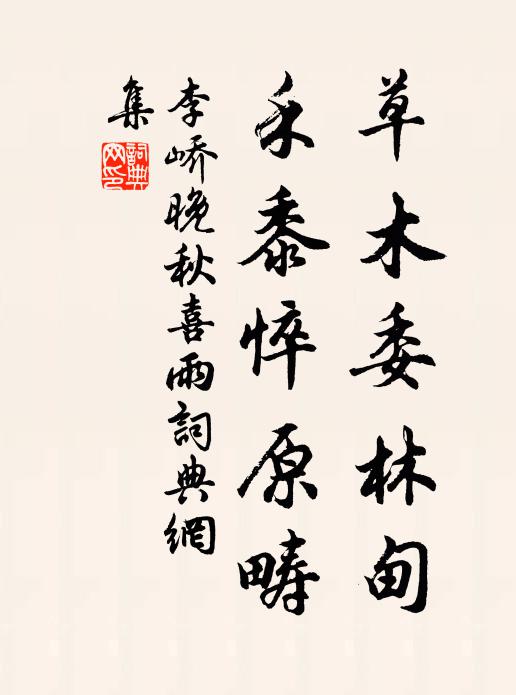 草木委林甸
禾黍悴原疇
李嶠晚秋喜雨詞典網
集
詞典
網印